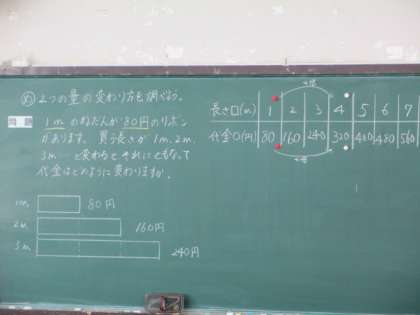 め 2つの量の変わり方を調べよう。
問題 1mのねだんが80円のリボン
があります。買う長さが1m、2m、
3m…と変わると、それにともなって
代金はどのように変わりますか。
1m 80円
2m 160円
3m 240円
長さ□(m) 1 2 3 4 5 6 7
代金○(円) 80 160 240 320 400 480 560